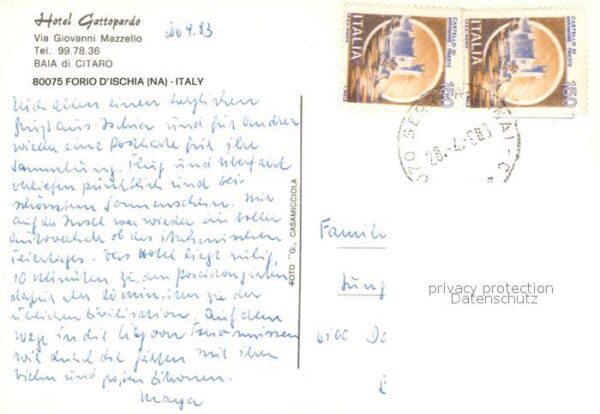 Hotel Gattopardo
Via Giovanni Mazzello
Tel. 99.78.36
BAIA di CITARO
80075 FORIO D'ISCHIA (NA) - ITALY
26.4.83
Euch allen einen herzlichen
Gruss aus Ischia und für Andrea
wieder eine Postkarte für ihre
Sammlung. Flug und Überfahrt
verliefen pünktlich und bei
schönstem Sonnenschein. Nur
auf der Insel war wieder ein toller
Autoverkehr ob des italienischen
Feiertages. Das Hotel liegt ruhig,
10 Minuten zu den Poseidongärten
dafür aber 20 Minuten zu der
üblichen Zivilisation. Auf dem
Weg in die City von Forio müssen
wir durch die Gassen mit ihren
vielen und
Maya
FOTO "G." CASAMICCIOLA
ITALIA
CASTELLO DI MIRAMARE - TRIESTE
150
ITALIA
CASTELLO DI MIRAMARE - TRIESTE
150
28.-4.-83
Familie
Jung
6100 Da
privacy protection
Datenschutz